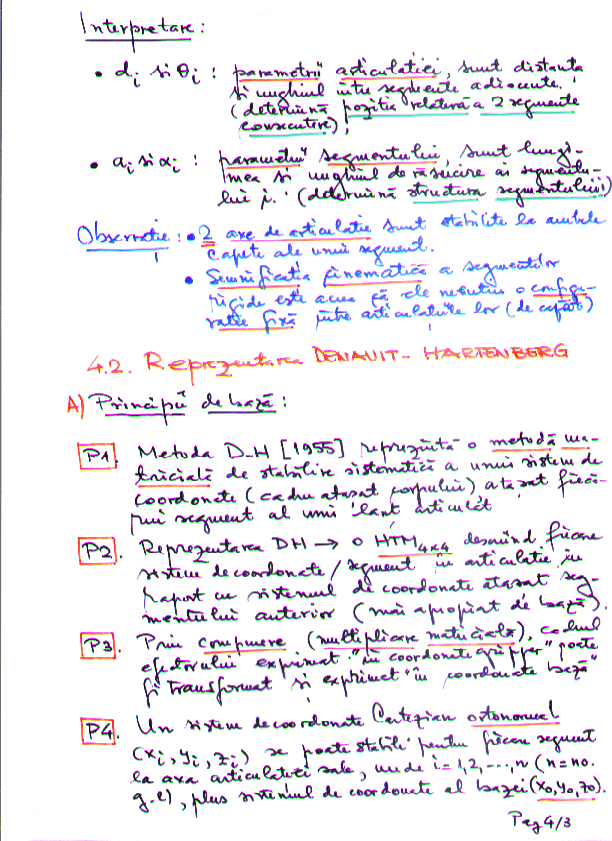 Interpretare:
• di si θi : parametrii articulatiei, sunt distanta
si unghiul intre segmente adiacente.
(determină pozitia relativă a 2 segmente
consecutive);
• ai si αi : parametrii segmentului, sunt lungi-
mea si unghiul de răsucire al segmentu-
lui i. (determină structura segmentului!)
Observatie: • 2 axe de articulatie sunt stabilite la ambele
capete ale unui segment.
• Semnificatia cinematică a segmentelor
rigide este aceea că ele mentin o configu-
ratie fixă între articulatiile lor (de capăt)
4.2. Reprezentarea DENAVIT - HARTENBERG
A) Principii de bază:
P1. Metoda D-H [1955] reprezintă o metodă ma-
tricială de stabilire sistematică a unui sistem de
coordonate (cadru atasat corpului) atasat fiecă-
rui segment al unui lant articulat.
P2. Reprezentarea DH → o HTM4x4 descriind fiecare
sistem de coordonate/segment în articulatie în
raport cu sistemul de coordonate atasat seg-
mentului anterior (mai apropiat de bază).
P3. Prin compunere (multiplicare matricială), cadrul
efectorului exprimat "în coordonate gripper" poate
fi transformat si exprimat "în coordonate bază"
P4. Un sistem de coordonate Cartezian ortonormal
(xi, yi, zi) se poate stabili pentru fiecare segment
la axa articulatiei sale, unde i=1,2,---,n (n=no.
g.l), plus sistemul de coordonate al bazei (x0,y0,z0).
Pag 4/3